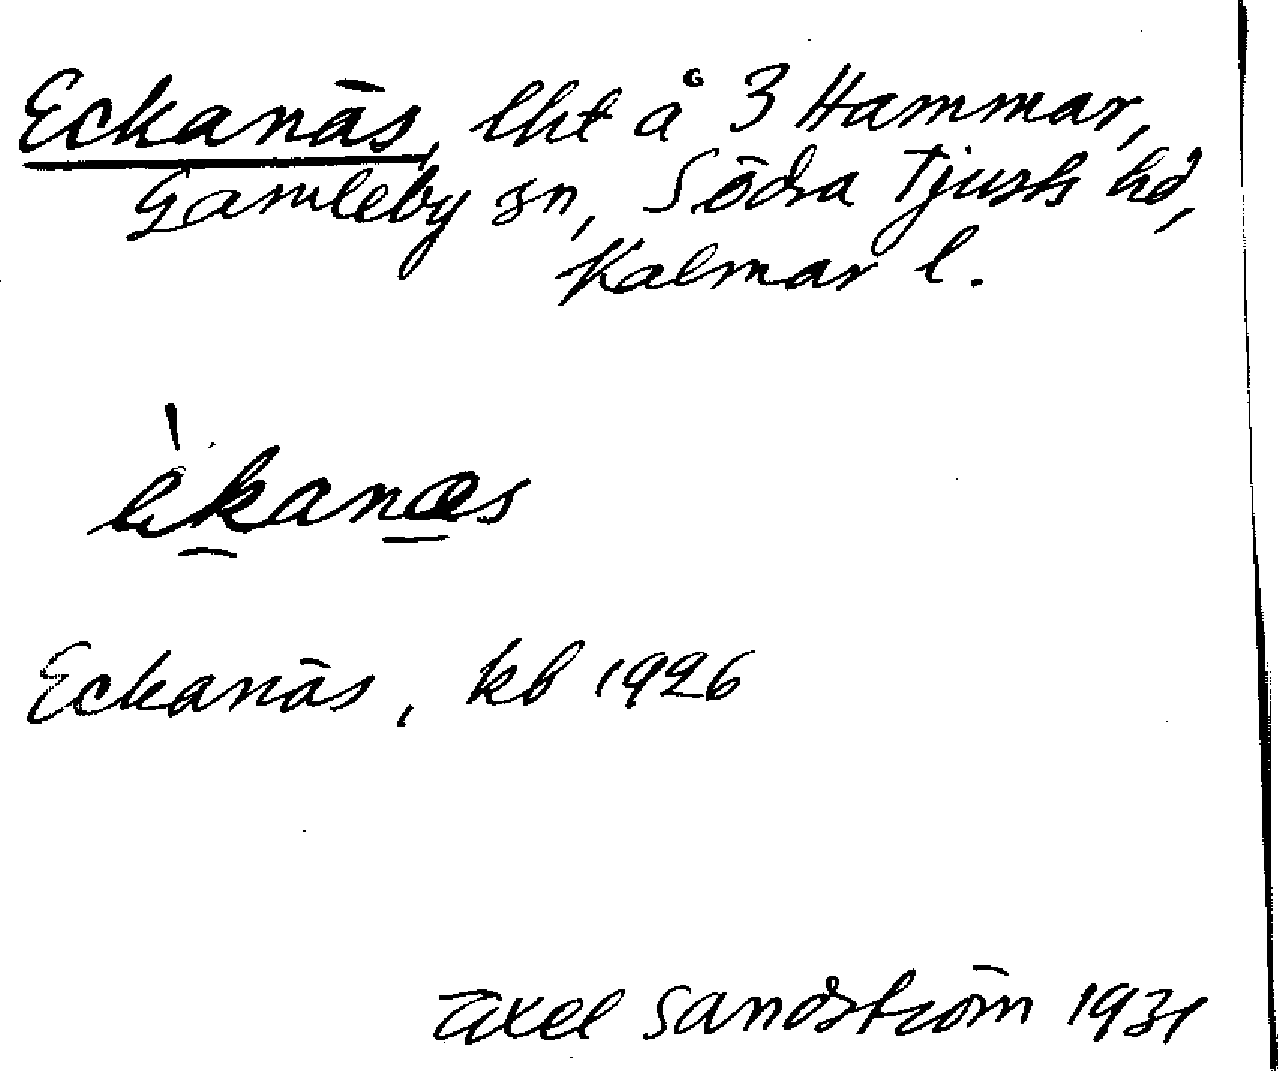 Eckanäs, lht å 3 Hammar,
Gamleby sn, Södra Tjusts hd,
Kalmar l.
èkanæs
Eckanäs, kb 1926
Axel Sandström 1931